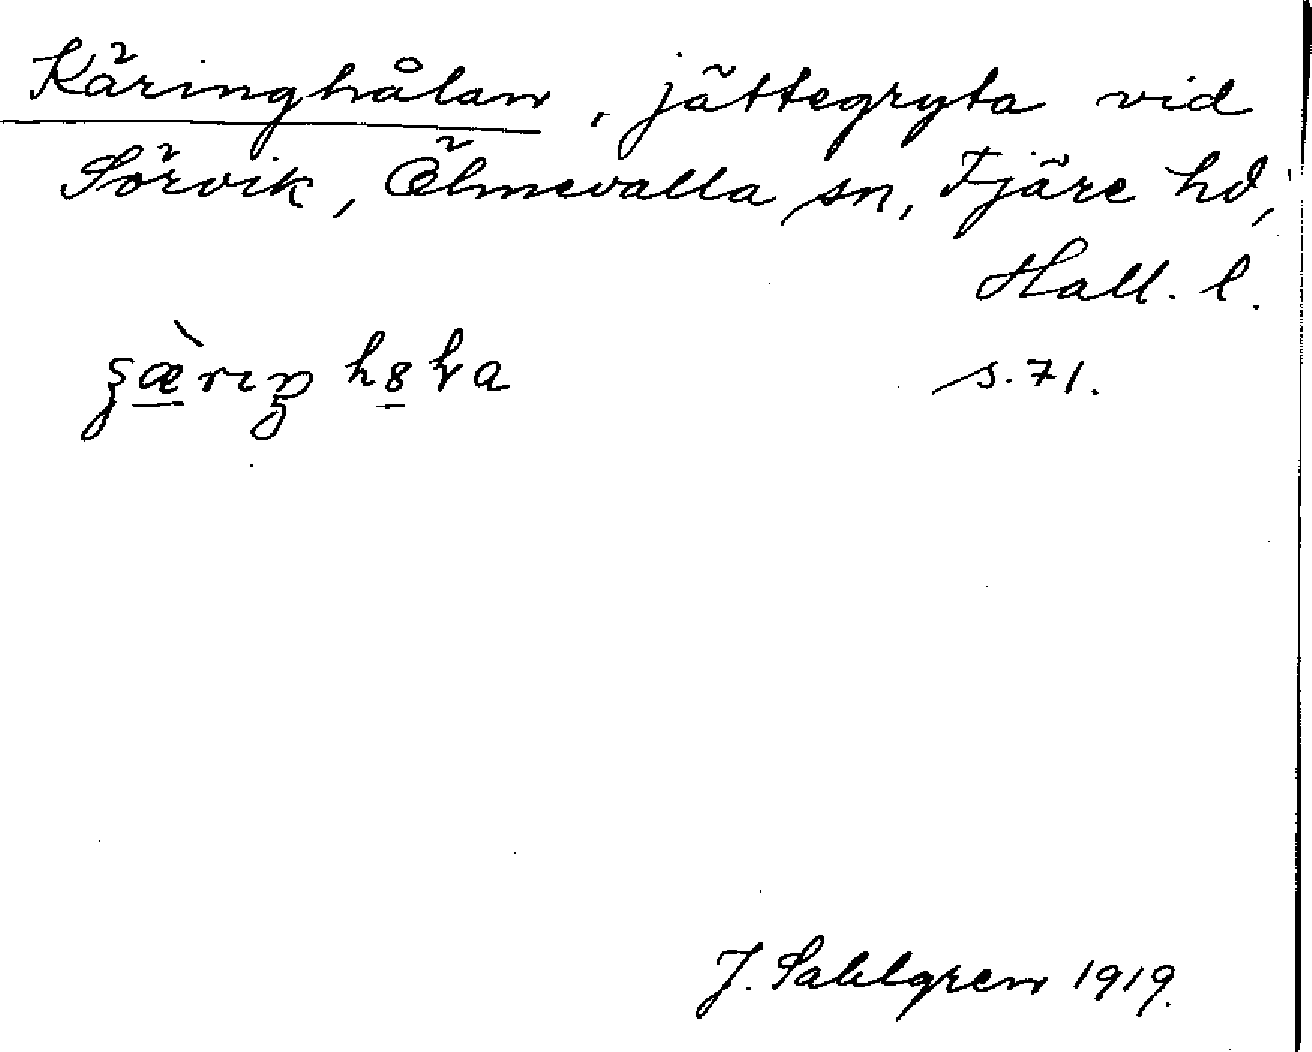 Käringhålan, jättegryta vid
Sörvik, Ölmevalla sn, Fjäre hd,
Hall. l.
s. 71.
J. Sahlgren 1919.